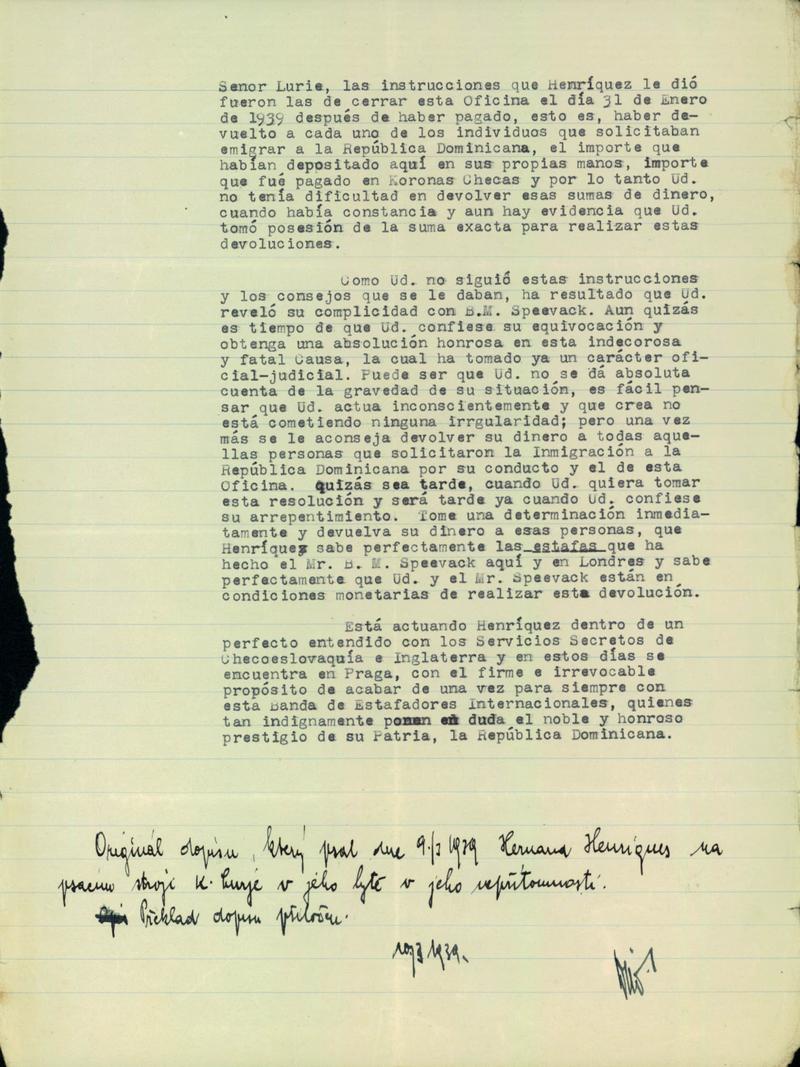 Senor Lurie, las instrucciones que Henríquez le dió
fueron las de cerrar esta Oficina el día 31 de Enero
de 1939 después de haber pagado, esto es, haber de-
vuelto a cada uno de los individuos que solicitaban
emigrar a la República Dominicana, el importe que
habían depositado aquí en sus propias manos, importe
que fué pagado en Koronas Checas y por lo tanto Ud.
no tenía dificultad en devolver esas sumas de dinero,
cuando había constancia y aun hay evidencia que Ud.
tomó posesión de la suma exacta para realizar estas
devoluciones.
Como Ud. no siguió estas instrucciones
y los consejos que se le daban, ha resultado que Ud.
reveló su complicidad con B.M. Speevack. Aun quizás
es tiempo de que Ud. confiese su equivocación y
obtenga una absolución honrosa en esta indecorosa
y fatal Causa, la cual ha tomado ya un carácter ofi-
cial-judicial. Puede ser que Ud. no se dá absoluta
cuenta de la gravedad de su situación, es fácil pen-
sar que Ud. actua inconscientemente y que crea no
está cometiendo ninguna irrgularidad; pero una vez
más se le aconseja devolver su dinero a todas aque-
llas personas que solicitaron la Inmigración a la
República Dominicana por su conducto y el de esta
Oficina. Quizás sea tarde, cuando Ud. quiera tomar
esta resolución y será tarde ya cuando Ud. confiese
su arrepentimiento. Tome una determinación inmedia-
tamente y devuelva su dinero a esas personas, que
Henríquez sabe perfectamente las estafas que ha
hecho el Mr. B. M. Speevack aquí y en Londres y sabe
perfectamente que Ud. y el Mr. Speevack están en
condiciones monetarias de realizar esta devolución.
Está actuando Henríquez dentro de un
perfecto entendido con los Servicios Secretos de
Checoeslovaquía e Inglaterra y en estos días se
encuentra en Praga, con el firme e irrevocable
propósito de acabar de una vez para siempre con
esta Banda de Estafadores Internacionales, quienes
tan indignamente ponen en duda el noble y honroso
prestigio de su Patria, la República Dominicana.
Originál dopisu, který psal dne 9./3 1939 Hernana Henriques na
psacím stroji K. Lurjé v jeho bytě v jeho nepřítomnosti.
Překlad dopisu přiložen.
10/3 1939.